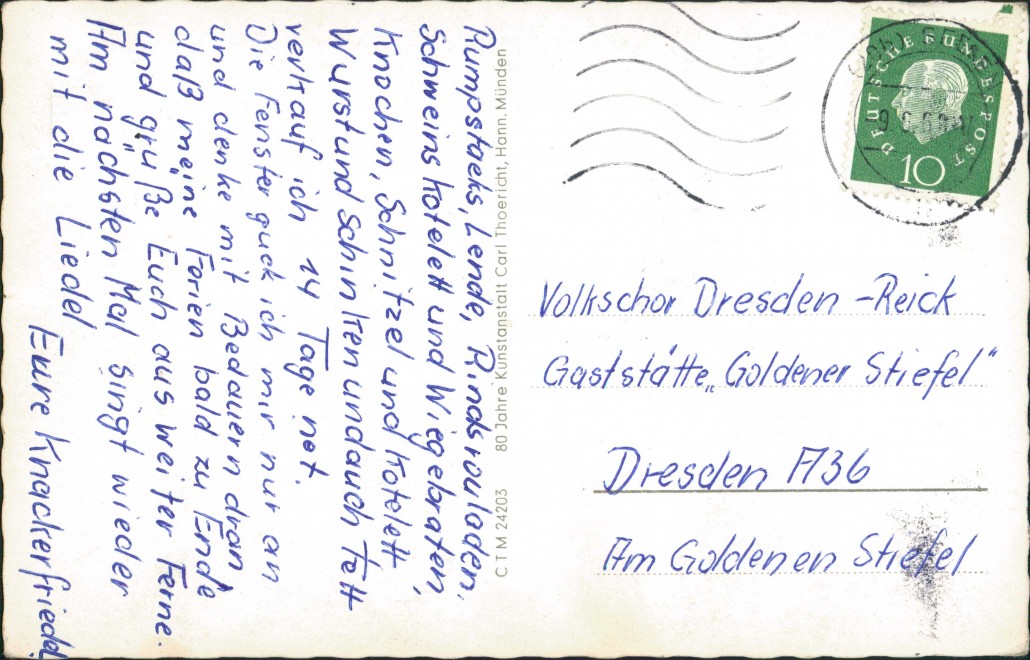 Rumpstaeks, Lende, Rindsrouladen,
Schweinskotelett und Wiegebraten,
Knochen, Schnitzel und Kotelett
Wurst und Schinken und auch Fett
verkauf ich 14 Tage net.
Die Fenster guck ich mir nur an
und denke mit Bedauern dran
daß meine Ferien bald zu Ende
und grüße Euch aus weiter Ferne.
Am nächsten Mal singt wieder
mit die Liedel
Eure Knackerfriedel
80 Jahre Kunstanstalt Carl Thoericht, Hann. Münden
CTM 24203
DEUTSCHE BUNDESPOST
10
Volkschor Dresden-Reick
Gaststätte „Goldener Stiefel"
Dresden A36
Am Goldenen Stiefel